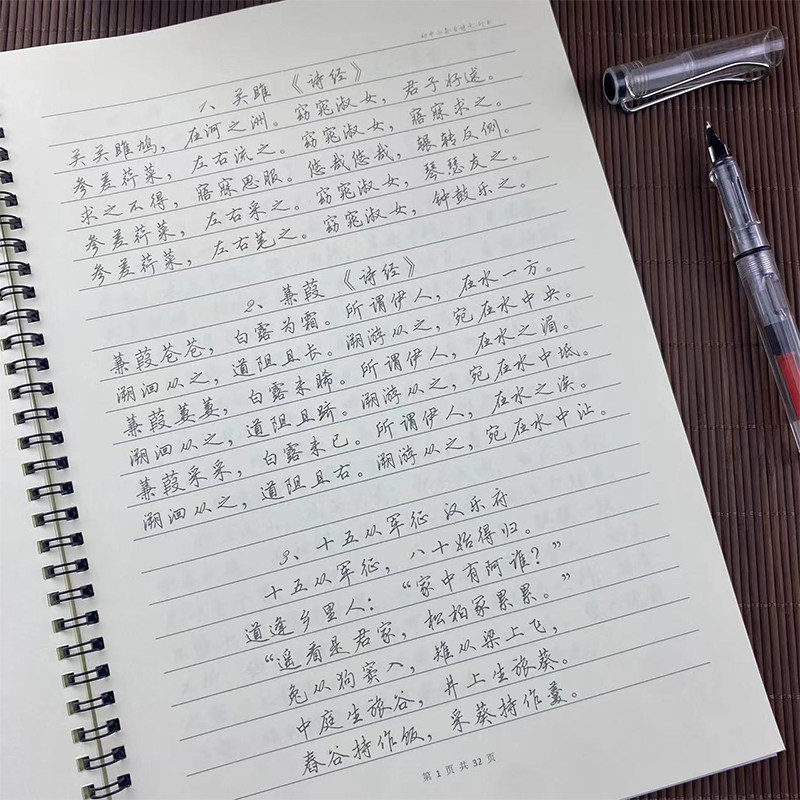 1、关雎 《诗经》
关关雎鸠，在河之洲。窈窕淑女，君子好逑。
参差荇菜，左右流之。窈窕淑女，寤寐求之。
求之不得，寤寐思服。悠哉悠哉，辗转反侧。
参差荇菜，左右采之。窈窕淑女，琴瑟友之。
参差荇菜，左右芼之。窈窕淑女，钟鼓乐之。
2、蒹葭 《诗经》
蒹葭苍苍，白露为霜。所谓伊人，在水一方。
溯洄从之，道阻且长。溯游从之，宛在水中央。
蒹葭萋萋，白露未晞。所谓伊人，在水之湄。
溯洄从之，道阻且跻。溯游从之，宛在水中坻。
蒹葭采采，白露未已。所谓伊人，在水之涘。
溯洄从之，道阻且右。溯游从之，宛在水中沚。
3、十五从军征 汉乐府
十五从军征，八十始得归。
道逢乡里人：“家中有阿谁？”
“遥看是君家，松柏冢累累。”
兔从狗窦入，雉从梁上飞，
中庭生旅谷，井上生旅葵。
舂谷持作饭，采葵持作羹。
第 1 页 共 32 页